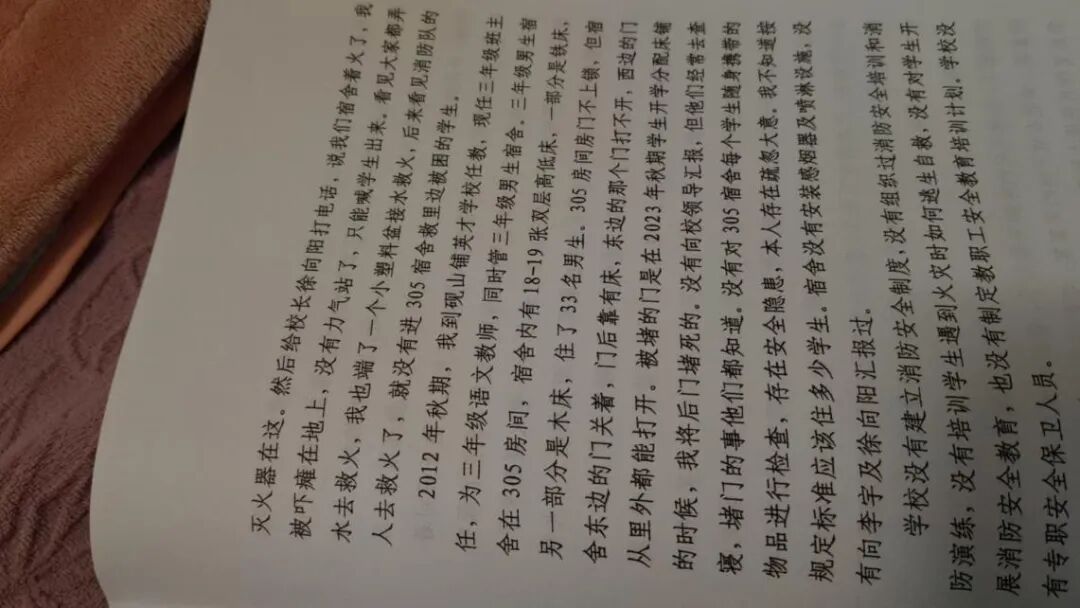 灭火器在这。然后给校长徐向阳打电话，说我们宿舍着火了，我
被吓瘫在地上，没有力气站了，只能喊学生出来。看见大家都弄
水去救火，我也端了一个小塑料盆接水救火，后来看见消防队的
人去救火了，就没有进 305 宿舍救里边被困的学生。
2012 年秋期，我到砚山铺英才学校任教，现任三年级班主
任，为三年级语文教师，同时管三年级男生宿舍。三年级男生宿
舍在 305 房间，宿舍内有 18-19 张双层高低床，一部分是铁床，
另一部分是木床，住了 33 名男生。305 房间房门不上锁，但宿
舍东边的门关着，门后靠有床，东边的那个门打不开，西边的门
从里外都能打开。被堵的门是在 2023 年秋期学生开学分配床铺
的时候，我将后门堵死的。没有向校领导汇报，但他们经常去查
寝，堵门的事他们都知道。没有对 305 宿舍每个学生随身携带的
物品进行检查，存在安全隐患，本人存在疏忽大意。我不知道按
规定标准应该住多少学生。宿舍没有安装感烟器及喷淋设施，没
有向李宇及徐向阳汇报过。
学校没有建立消防安全制度，没有组织过消防安全培训和消
防演练，没有培训学生遇到火灾时如何逃生自救，没有对学生开
展消防安全教育，也没有制定教职工安全教育培训计划。学校没
有专职安全保卫人员。